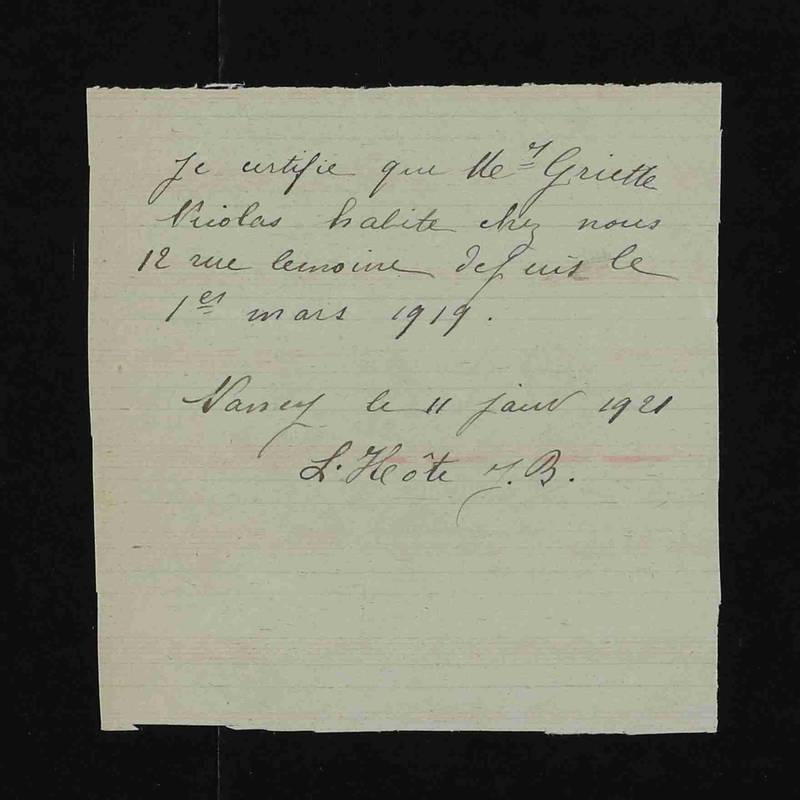 Je certifie que Mr Griette
Nicolas habite chez nous
12 rue lemoine depuis le
1er mars 1919.
Nancy le 11 janv 1921
L'Hôte J.B.